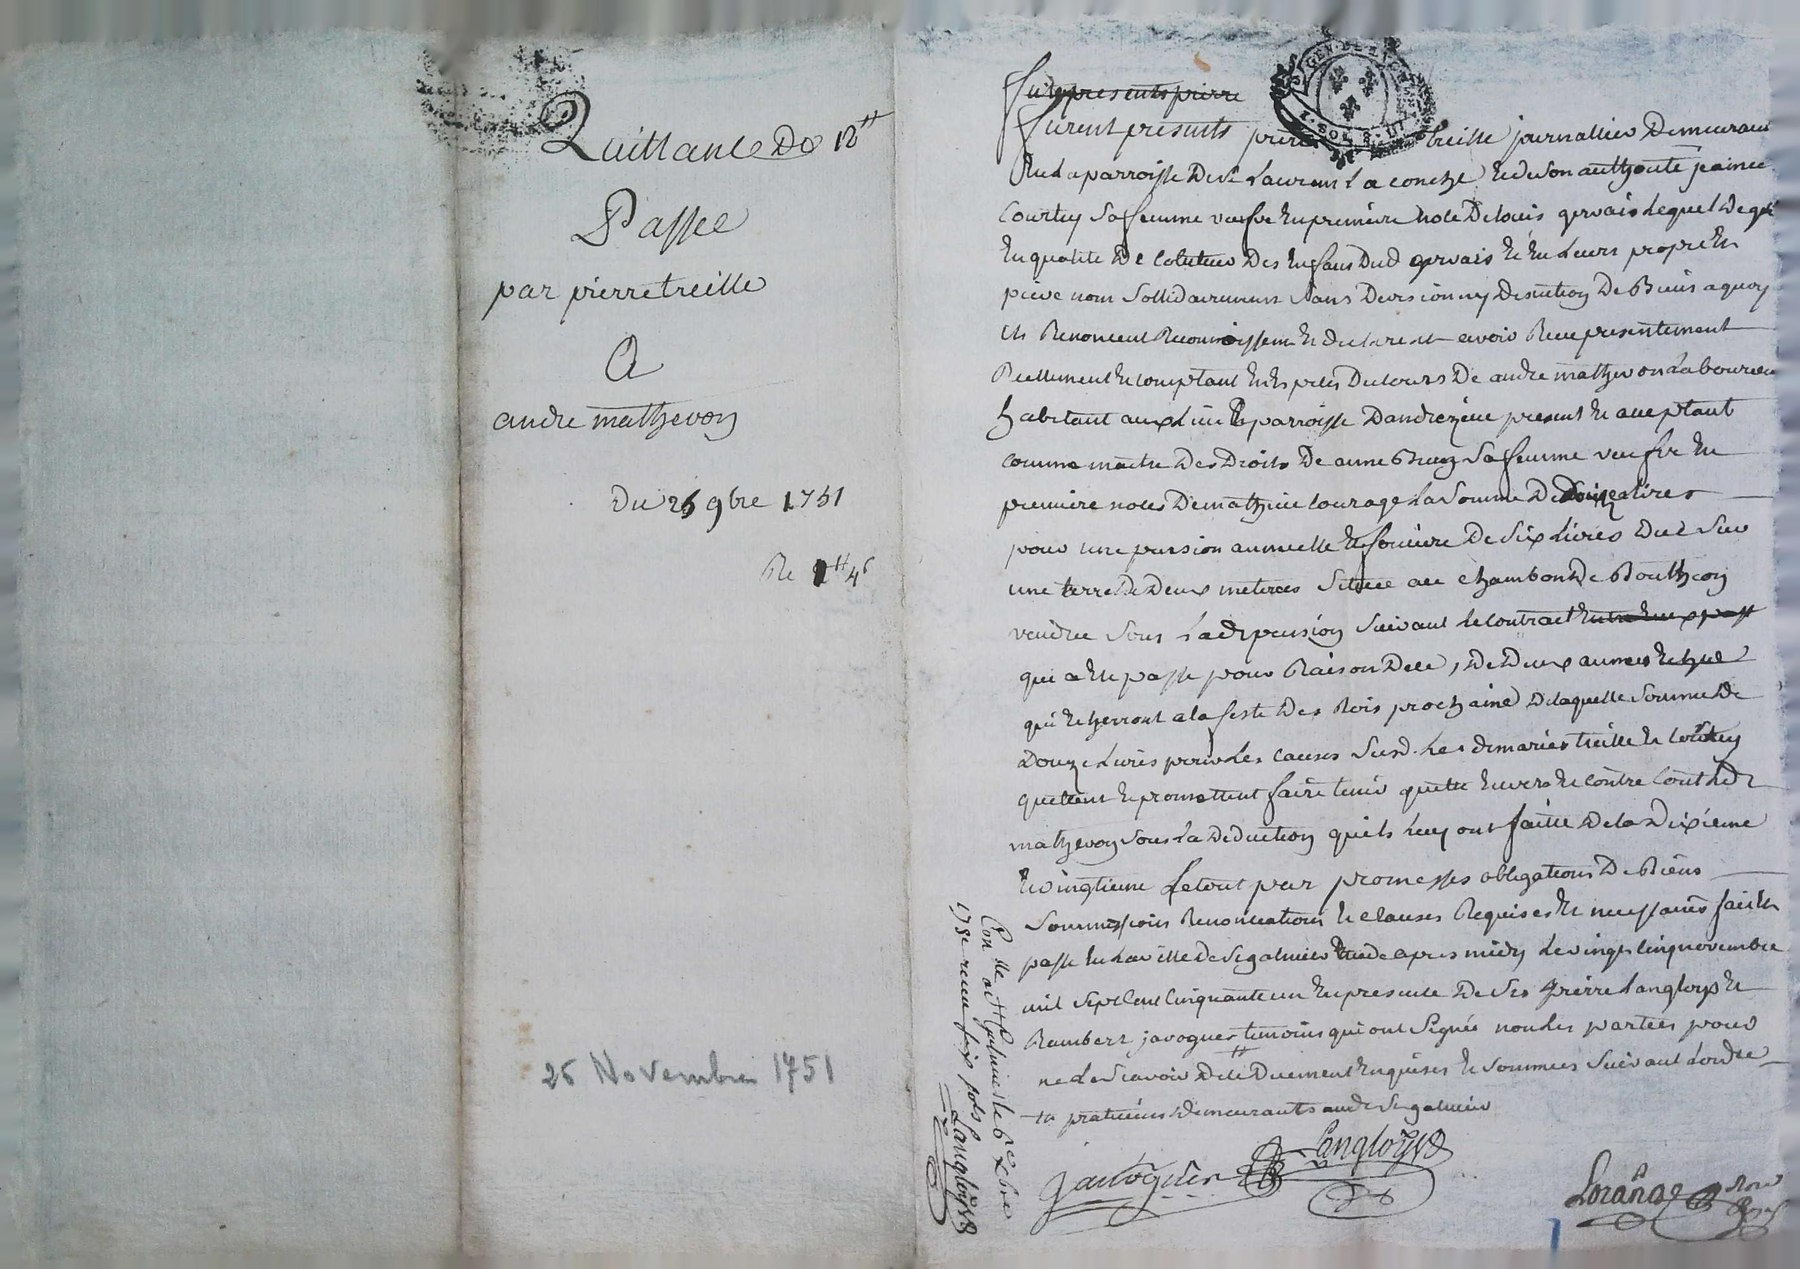 Quittance De 12ᵗᵗ
Passee
par pierre treille
A
andre mathevon
Du 25 9bre 1751
Re 4ˢ
25 Novembre 1751
furent presents pierre
furent presents pierre treille journallier Demeurant
En La parroisse De st Laurent La conche Et de son authorité jeanne
Courtey sa femme veufve En premiere note De louis gervais Lequel De gré
En qualité De Cotuteur Des Enfans Dud gervais Et En Leurs propre Et
privé nom Sollidairement Sans Division ny Discution De Biens a quoy
ils Renoncent Reconnoissent Et declarent avoir Receu presentement
Reellement Et comptant En Especes Du cours De andre mathevon Laboureur
habitant aux Lieu Et parroisse Dandrezieu present Et acceptant
comme maitre Des Droits De anne sa femme veufve En
premiere noces De mathieu courage La Somme De Douze Livres
pour une pension annuelle Et fonciere De Six Livres Due Sur
une terre De Deux meterees Scituee au chambon De Bouthéon
vendue Sous Lad pension Suivant Le contract
qui a Ete passé pour Raison De ce, De Deux annees Echue
qui Echerront a la feste Des Rois prochaine De laquelle Somme De
Douze Livres pour Les causes Susd. Les d maries treille Et Courtey
quittent Et promettent faire tenir quitte Envers Et contre tout Led
mathevon Sous La Deduction quils Luy ont faitte De la Dixieme
Et vingtieme Le tout par promesses obligations De Biens
Soumissions Renonciations Et clauses Requises Et necessaires fait Et
passé En La ville De St galmier Etude apres midy Le vingt cinq novembre
mil Sept Cent Cinquante un En presence De Srs pierre Langloys Et
Rambert javogues temoins qui ont Signé non Les parties pour
ne Le Scavoir De ce Duement Enquises Et Sommees Suivant Lordre
praticiens Demeurants aud St galmier
javogues
Langloys
Lorange
Conᵗˡᵉ a St Galmier le 6ᵉ Xbre
1751 receu six sols Langloys